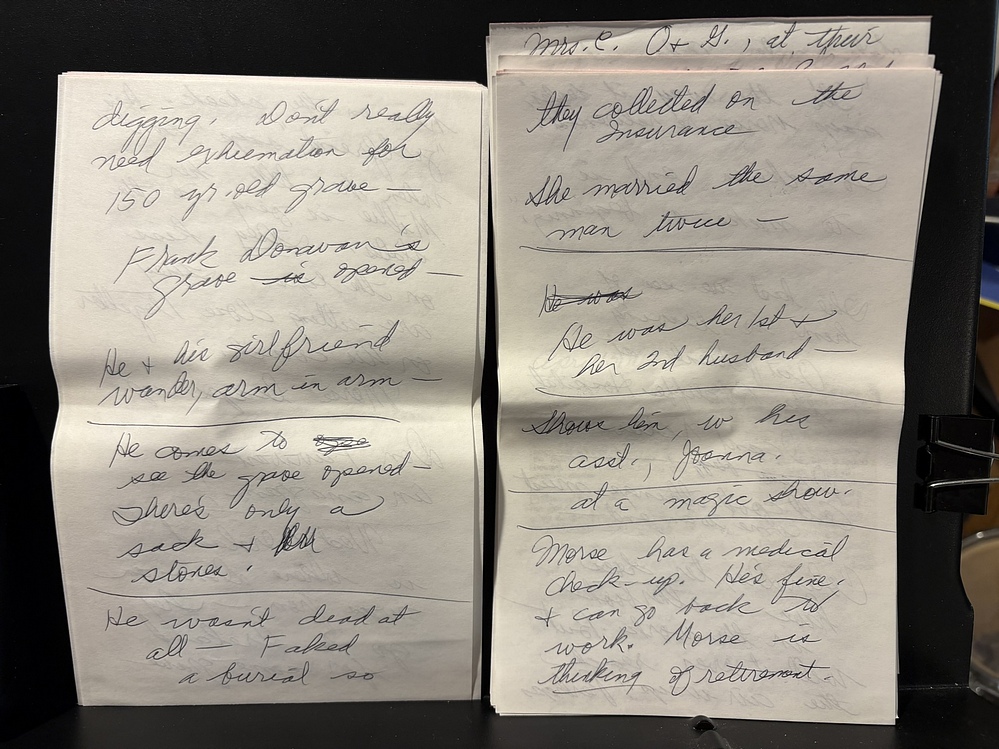 digging. Don't really
need exhumation for
150 yr old grave —
Frank Donavan is
grave is opened —
He + his girlfriend
wander, arm in arm —
He comes to
see the grave opened —
There's only a
sack +
stones.
He wasn't dead at
all — Faked
a burial so
Mrs. C. O + G., at their
they collected on the
Insurance
She married the same
man twice —
He was
He was her 1st +
her 2nd husband —
Shows him, w his
asst., Joanna.
at a magic show.
Morse has a medical
check-up. He's fine.
+ can go back to
work. Morse is
thinking of retirement.